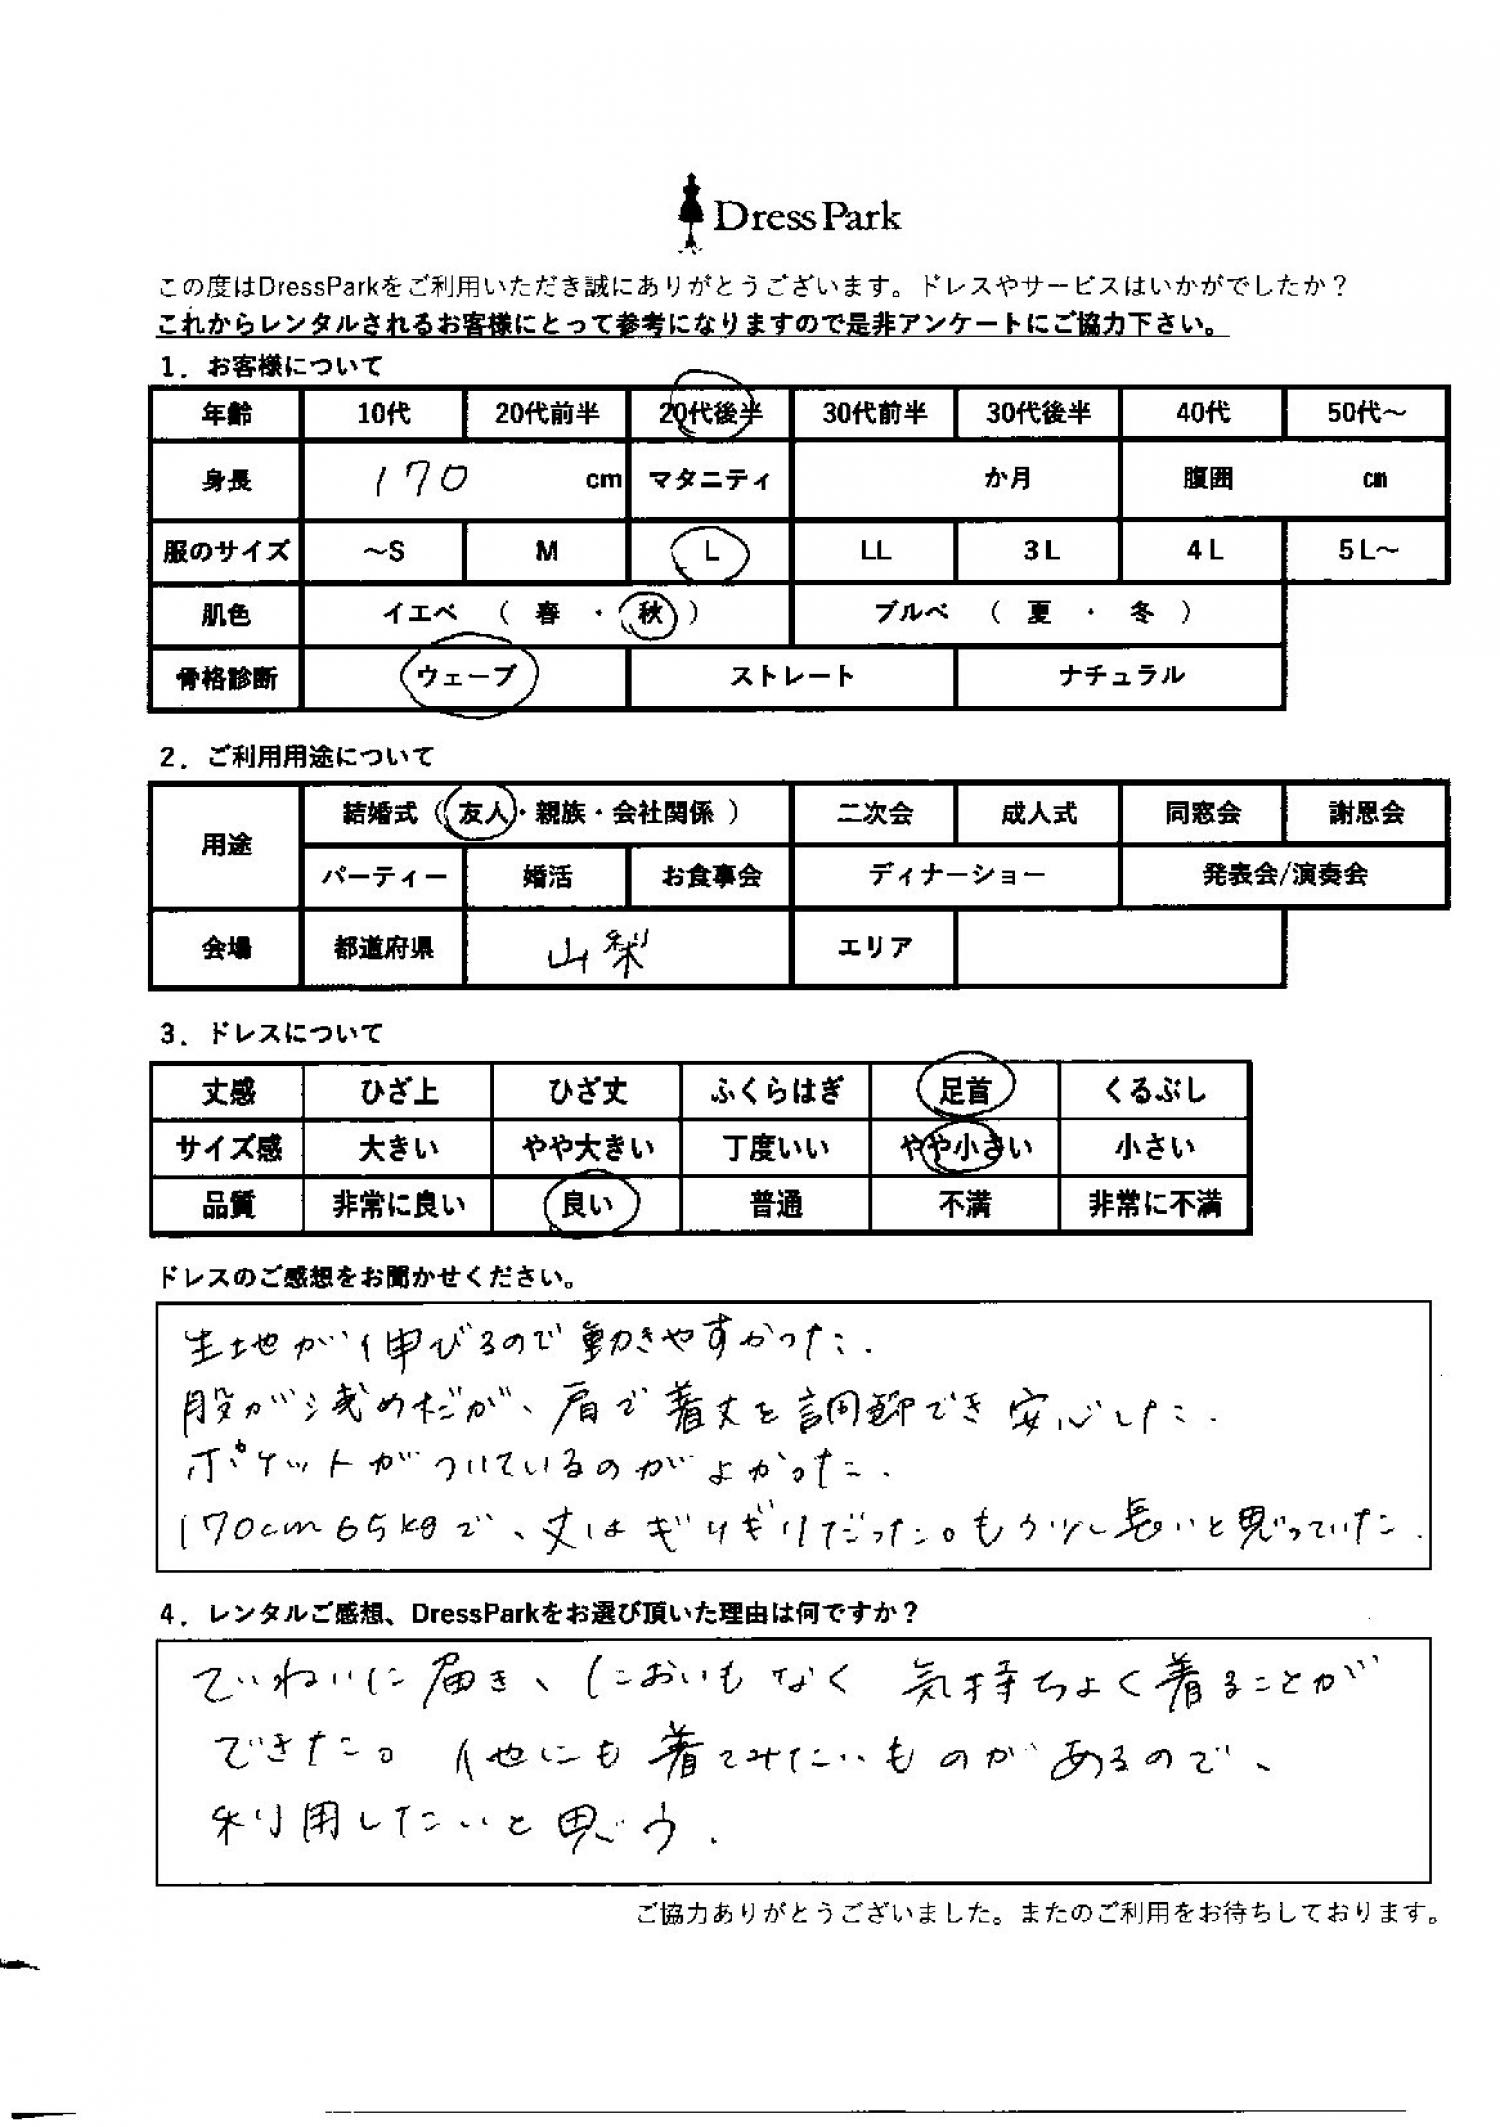 Dress Park
この度はDressParkをご利用いただき誠にありがとうございます。ドレスやサービスはいかがでしたか？
これからレンタルされるお客様にとって参考になりますので是非アンケートにご協力下さい。
1．お客様について
年齢 10代 20代前半 20代後半 30代前半 30代後半 40代 50代～
身長 170 cm マタニティ か月 腹囲 cm
服のサイズ ～S M L LL 3L 4L 5L～
肌色 イエベ （ 春 ・ 秋 ） ブルベ （ 夏 ・ 冬 ）
骨格診断 ウェーブ ストレート ナチュラル
2．ご利用用途について
用途 結婚式（ 友人・親族・会社関係 ） 二次会 成人式 同窓会 謝恩会
パーティー 婚活 お食事会 ディナーショー 発表会/演奏会
会場 都道府県 山梨 エリア
3．ドレスについて
丈感 ひざ上 ひざ丈 ふくらはぎ 足首 くるぶし
サイズ感 大きい やや大きい 丁度いい やや小さい 小さい
品質 非常に良い 良い 普通 不満 非常に不満
ドレスのご感想をお聞かせください。
生地が伸びるので動きやすかった.
股が浅めだが、肩で着丈を調節でき安心した.
ポケットがついているのがよかった.
170cm65kgで、丈はギリギリだった。もう少し長いと思っていた.
4．レンタルご感想、DressParkをお選び頂いた理由は何ですか？
ていねいに届き、においもなく気持ちよく着ることが
できた。他にも着てみたいものがあるので、
利用したいと思う.
ご協力ありがとうございました。またのご利用をお待ちしております。